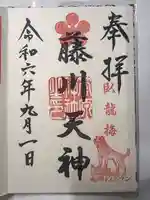 奉拝
臥龍梅
藤川天神
令和六年九月一日